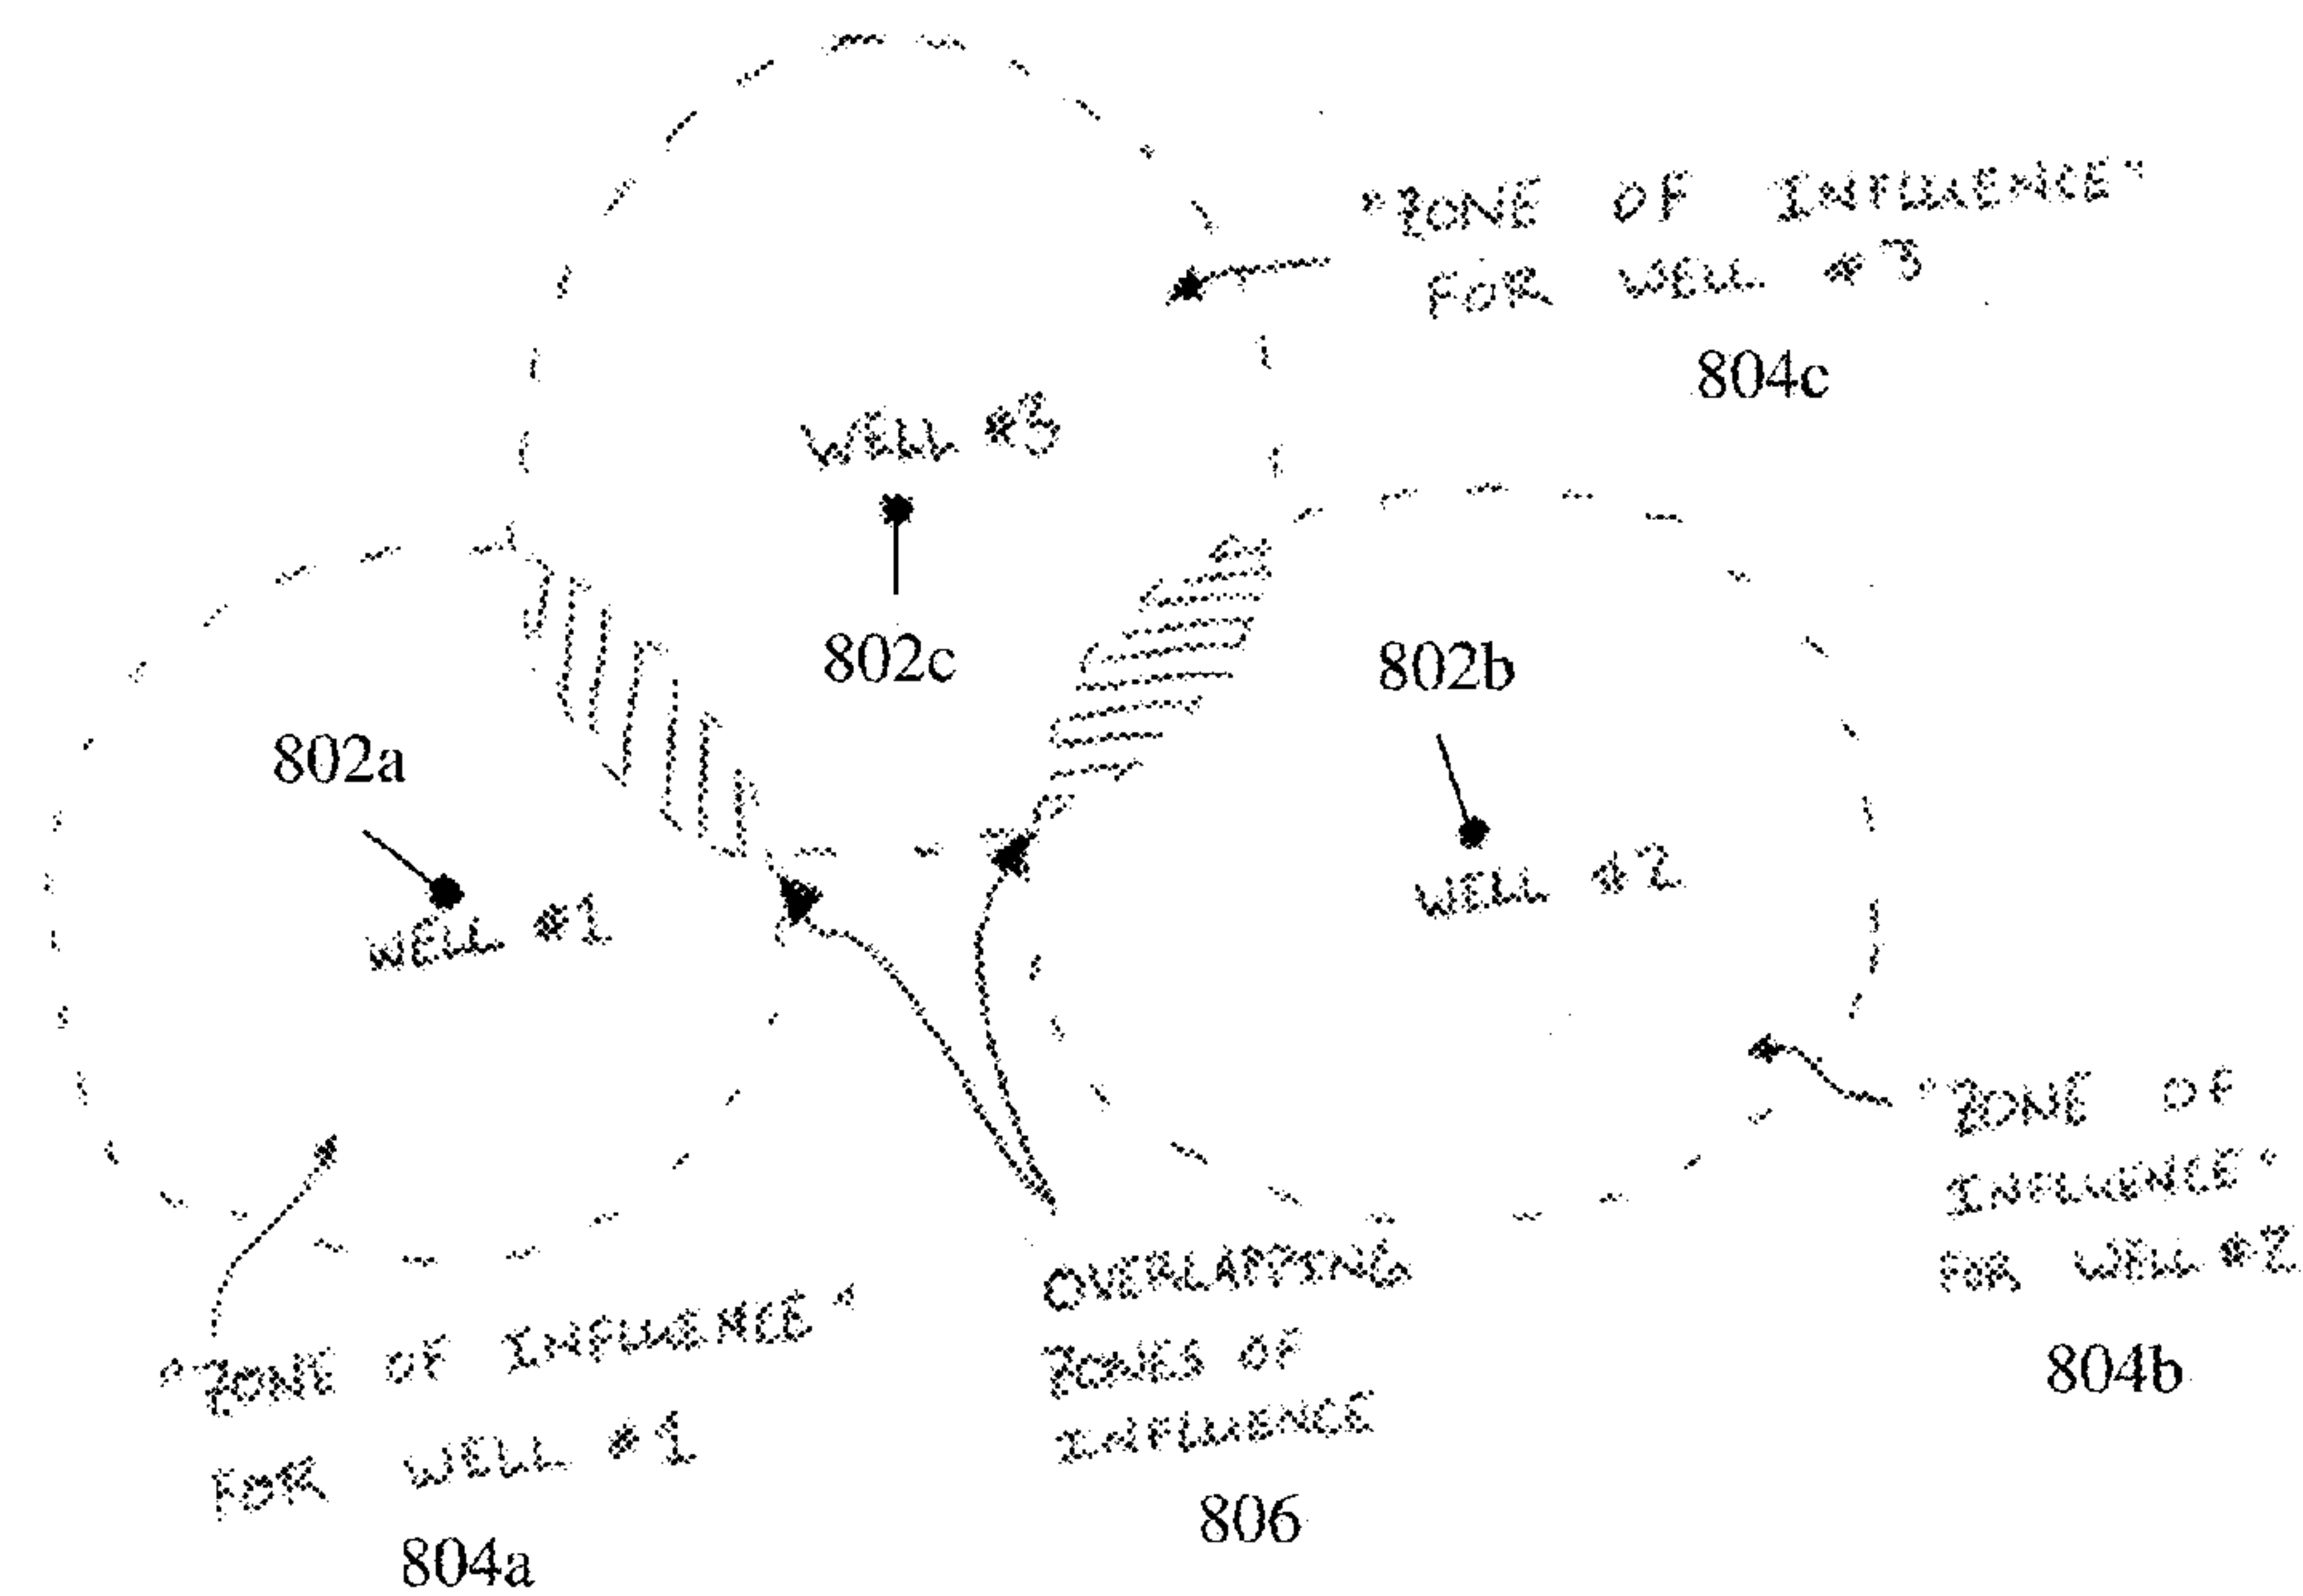 "ZONE OF INFLUENCE"
FOR WELL #3
804c
WELL #3
802c
802b
802a
WELL #2
WELL #1
"ZONE OF
INFLUENCE"
FOR WELL #2
804b
OVERLAPPING
ZONES OF
INFLUENCE
806
"ZONE OF INFLUENCE"
FOR WELL #1
804a